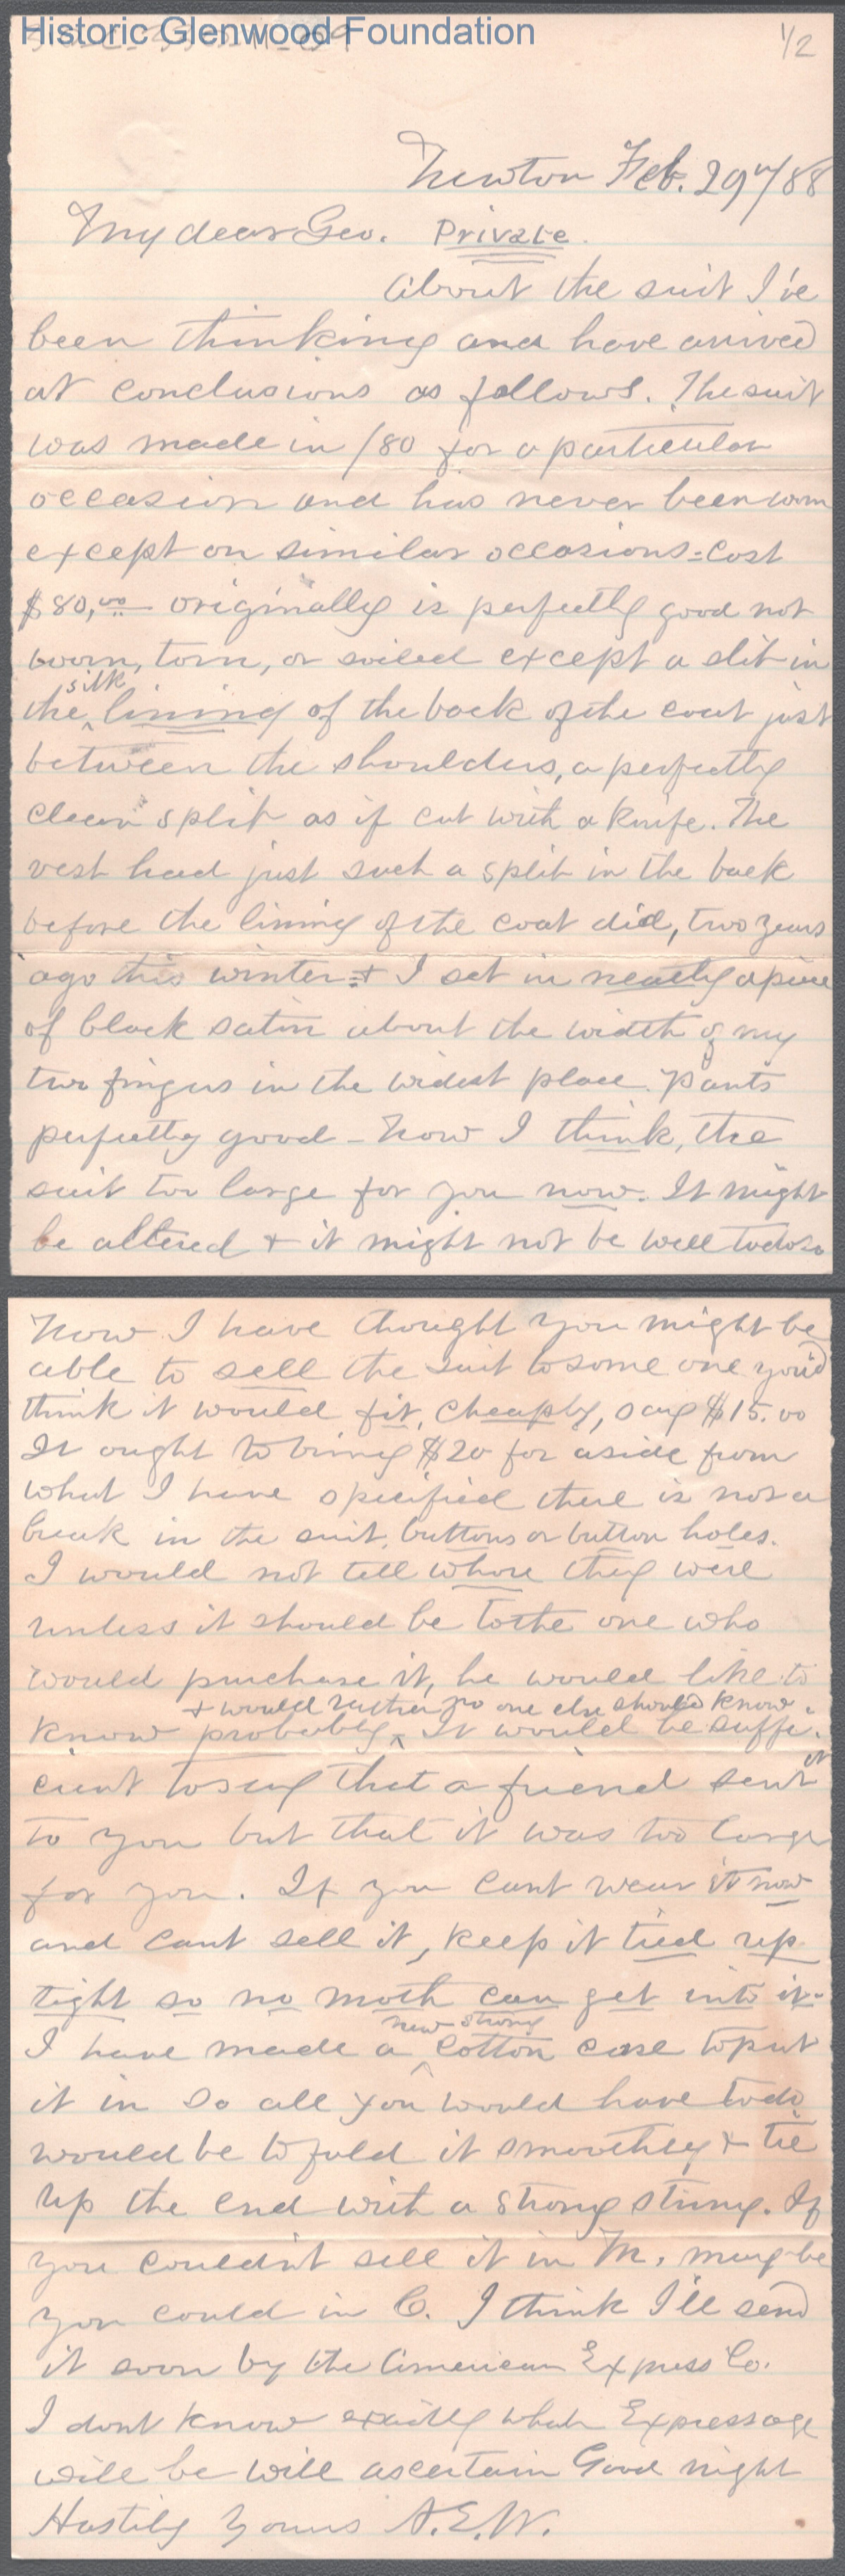 Historic Glenwood Foundation
1/2
Newton Feb. 29th/88
My dear Geo. Private.
About the suit I've
been thinking and have arrived
at conclusions as follows. The suit
was made in /80 for a particular
occasion and has never been worn
except on similar occasions - cost
$80,00 originally is perfectly good not
worn, torn, or soiled except a slit in
silk
the ^ lining of the back of the coat just
between the shoulders, a perfectly
clean split as if cut with a knife. The
vest had just such a split in the back
before the lining of the coat did, two years
ago this winter & I set in neatly a piece
of black satin about the width of my
two fingers in the widest place. Pants
perfectly good - Now I think, the
suit too large for you now. It might
be altered & it might not be well to do so
Now I have thought you might be
able to sell the suit to some one you'd
think it would fit, cheaply, say $15.00
It ought to bring $20 for aside from
what I have specified there is not a
break in the suit, buttons or button holes.
I would not tell whose they were
unless it should be to the one who
would purchase it, he would like to
& would rather no one else should know.
know probably ^ It would be suffi-
cient to say that a friend sent it
to you but that it was too large
for you. If you cant wear it now
and cant sell it, keep it tied up
tight so no moth can get into it.
new strong
I have made a ^ cotton case to put
it in so all you would have to do
would be to fold it smoothly & tie
up the end with a strong string. If
you couldn't sell it in M. may be
you could in C. I think I'll send
it soon by the American Express Co.
I dont know exactly what Expressage
will be will ascertain Good night
Hastily Yours A.E.W.